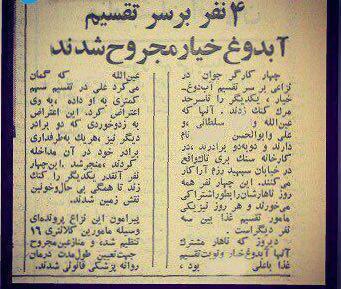 ۴ نفر بر سر تقسیم
آبدوغ خیار مجروح شدند
چهار کارگر جوان در
نزاعی بر سر تقسیم آبدوغ-
خیار ، یکدیگر را تا سرحد
مرگ کتک زدند . آنها که
عین‌الله و سلطانی ، و
علی و ابوالحسن نام
دارند و دوبدو برادرند ،در
کارخانه سنگ بری تاك واقع
در خیابان سپهبد رزم آرا کار
می‌کنند. این چهار نفر همه
روز ناهارشان را بطور اشتراکی
می‌خورند و هر روز نیز یکی
مامور تقسیم غذا بین سه
نفر دیگر است .
دیروز که ناهار مشترك
آنها آبدوغ خیار و نوبت تقسیم
غذا با علی بود ،
عین‌الله که گمان
می‌کرد علی در تقسیم سهم
کمتری به او داده ، به وی
اعتراض کرد. این اعتراض
به زدوخوردی که دو برادر
دیگر نیز ،هریك به طرفداری
برادر خود در آن مداخله
کردند ،منجر شد .این چهار
نفر آنقدر یکدیگر را کتك
زدند تا همگی بی حال و خونین
نقش زمین شدند.
پیرامون این نزاع پرونده‌ای
وسیله مامورین کلانتری ۱۶
تنظیم شده و منازعین مجروح
جهت تعیین طول مدت درمان
روانه پزشکی قانونی شدند.